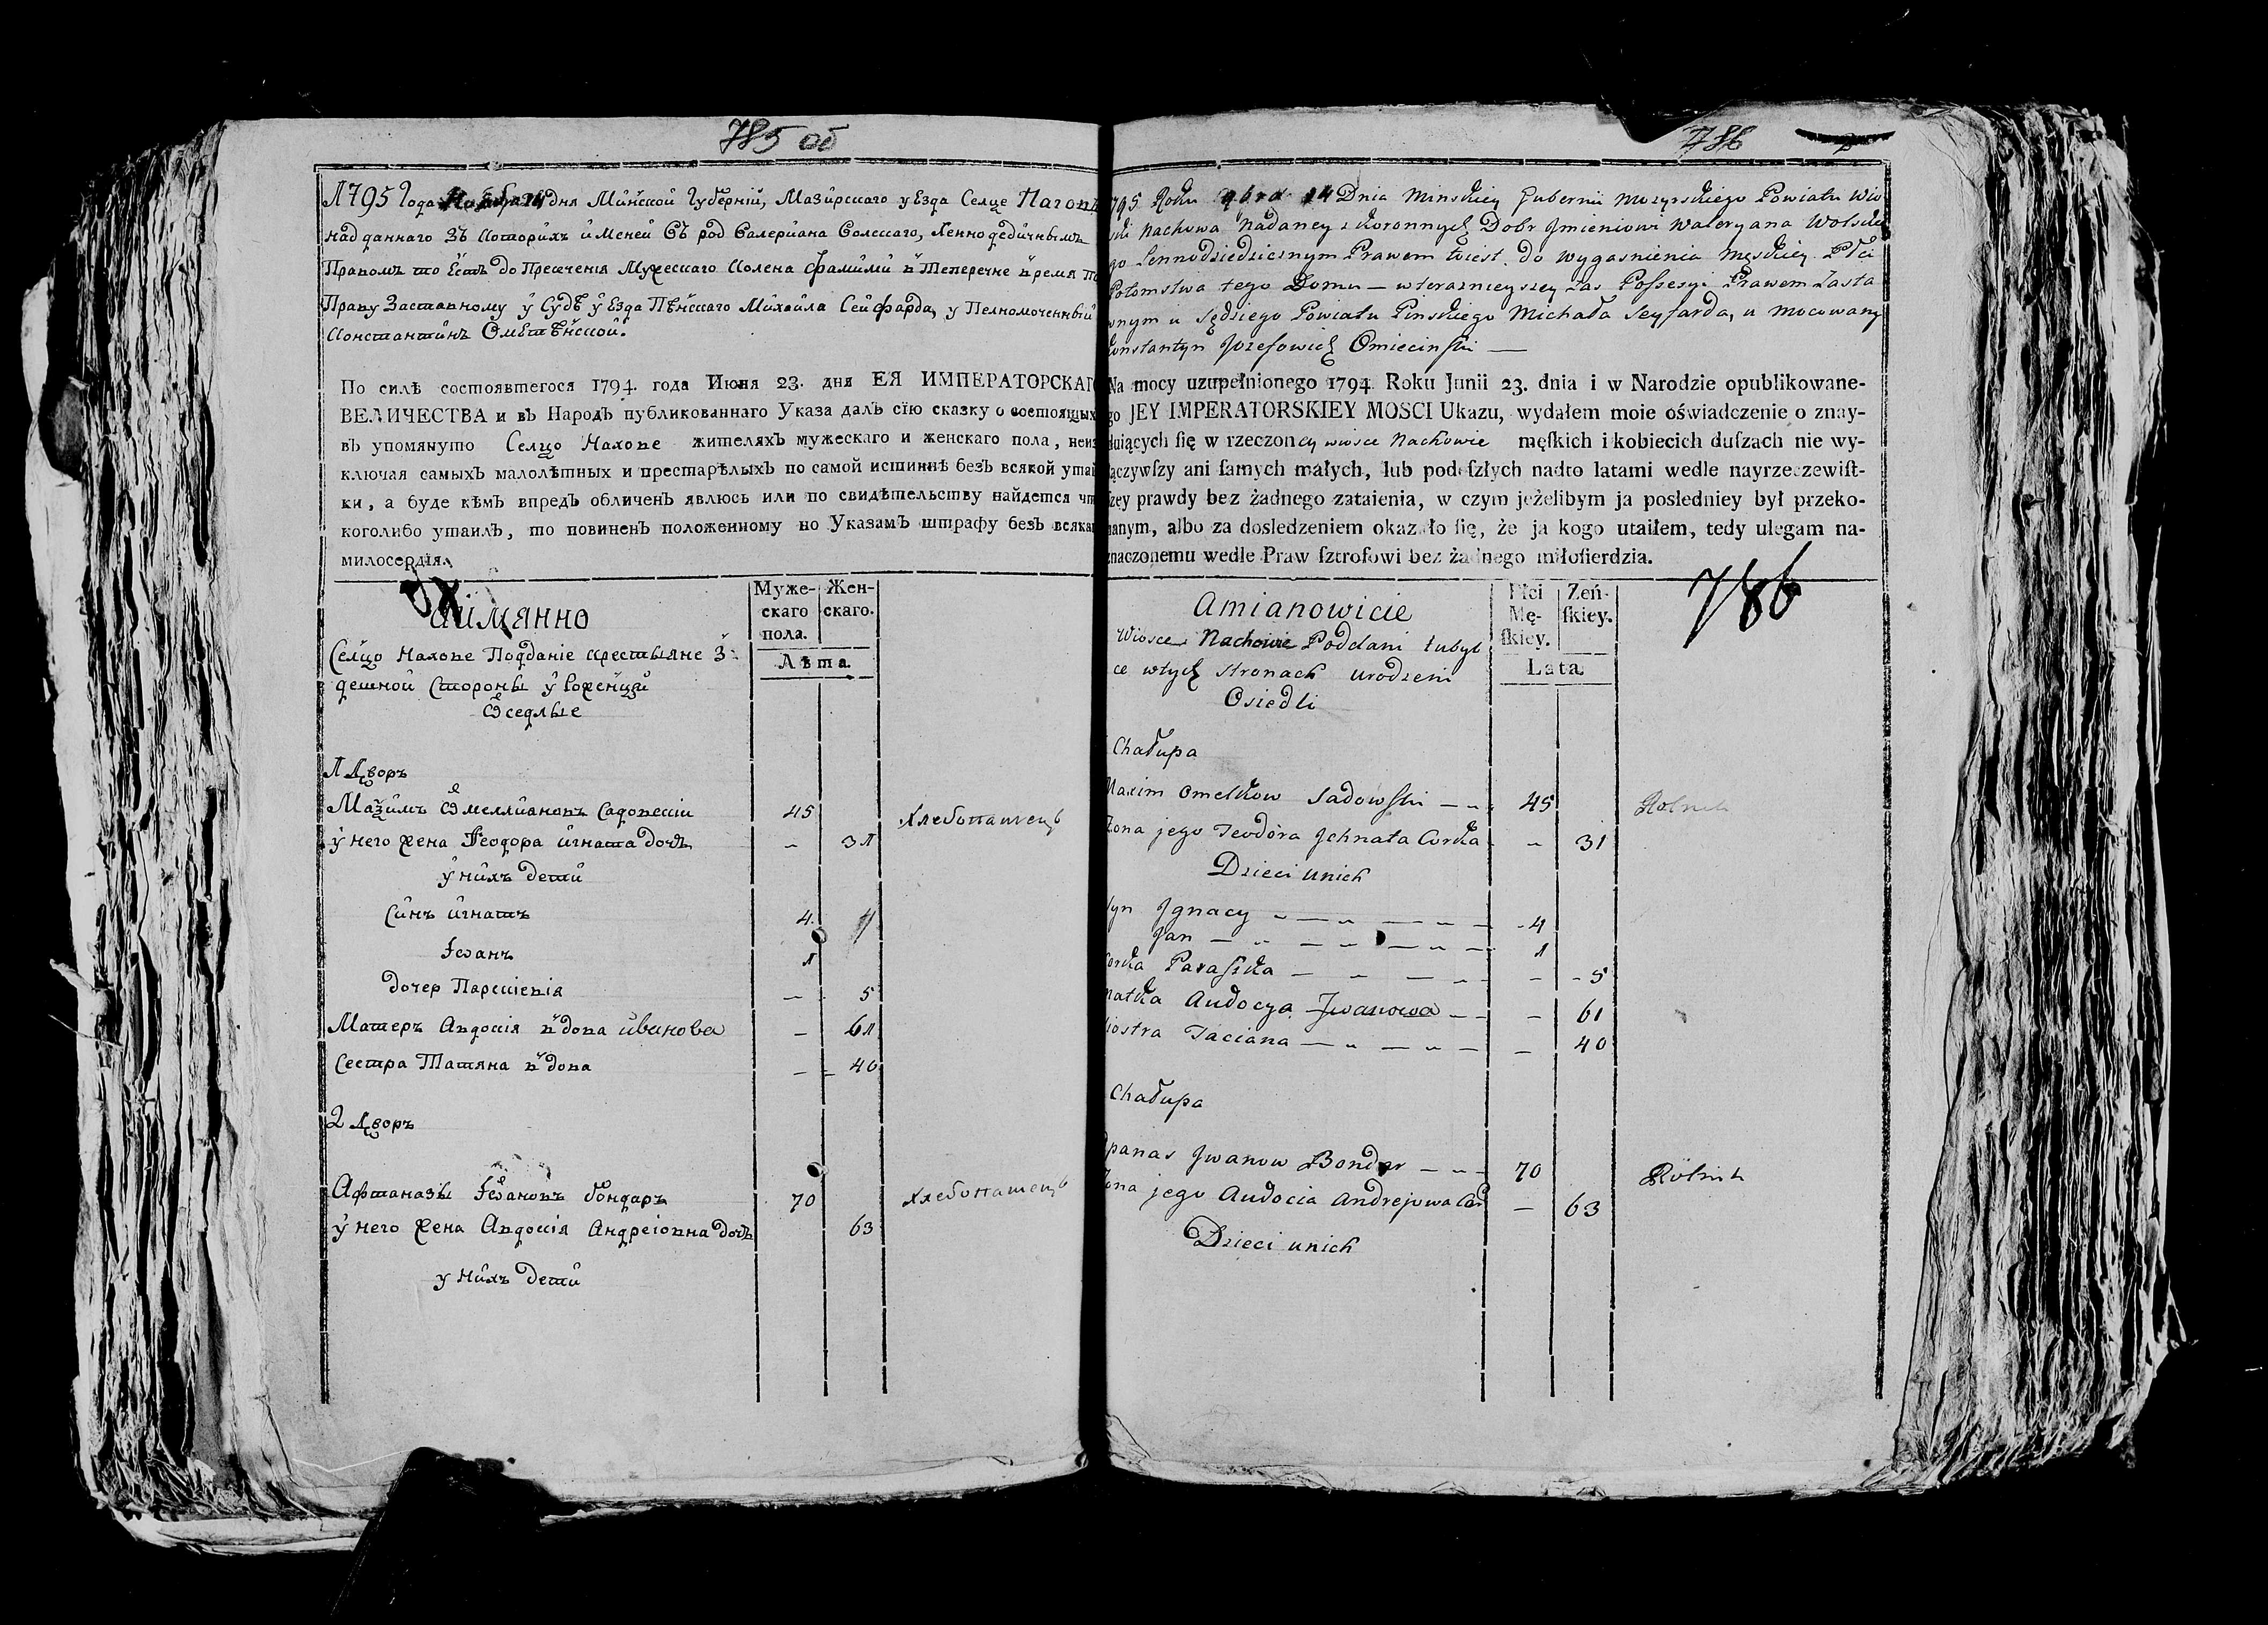 785 об
1795 Года Ноября 14 дня Минской Губерніи, Мазирскаго уЕзда Селце Нагова
надданнаго Зъ Которихъ именей Съ род Валерияна Волсскаго, Ленно дедичнымъ
Правомъ то Естъ до Пресечения Мужескаго Колена фамилии в Теперечне время по
Праву Заставному у Судѣ уЕзда Пѣнскаго Михайла Сейфарда, у Пелномоченный
Константинъ Омѣтѣнской.
По силѣ состоявшегося 1794. года Июня 23. дня ЕЯ ИМПЕРАТОРСКАГО
ВЕЛИЧЕСТВА и въ Народъ публикованнаго Указа далъ сїю сказку о состоящихъ
въ упомянуто Селцо Нахове жителяхъ мужескаго и женскаго пола, неиз
ключая самыхъ малолѣтныхъ и престарѣлыхъ по самой истиннѣ безъ всякой утай
ки, а буде кѣмъ впредъ обличенъ явлюсь или по свидѣтельству найдется что
коголибо утаилъ, то повиненъ положенному по Указамъ штрафу безъ всякаго
милосердїя.
аимянно
Муже-
скаго
пола.
Жен-
скаго.
Лѣта
Селцо Нахове Подданіе крестьяне З:
дешной Стороны уРоженци
Оседлые
1 Дворъ
Мазимъ Омеллиановъ Садовсkiи 45 Хлебопашецъ
у него жена Феодора игната дочъ - 31
у нихъ дети
Синъ игнатъ 4
Іванъ 1
дочер Парскіевія - 5
Матеръ Авдокія вдова иванова - 61
Сестра Татяна вдова - 40
2 Дворъ
Афтаназы Івановъ бондаръ 70 Хлебопашецъ
у него жена Авдокія Андреіовна дочъ 63
у нихъ дети
786
795 Roku 9bra 14 Dnia Minskiey Gubernii Mozyrskiego Powiatu Wio
ski Nachowa Nadaney z koronnych Dobr Jmieniowi Waleryana Wolskie
go Lennodziedzicznym Prawem toiest do wygasnienia męskiey Płci
Potomstwa tego Domu — w terazniejszey zas Possesyi Prawem Zasta
wnym u Sędziego Powiatu Pinskiego Michała Seyfarda, u mocowany
Konstantyn Jozefowicz Omiecinski —
Na mocy uzupełnionego 1794 Roku Junii 23. dnia i w Narodzie opublikowane-
go JEY IMPERATORSKIEY MOSCI Ukazu, wydałem moie oświadczenie o znay-
duiących ſię w rzeczoney wiosce Nachowie męſkich i kobiecich duſzach nie wy-
łączywſzy ani ſamych małych, lub podeſzłych nadto latami wedle nayrzeczewiſt-
ſzey prawdy bez żadnego zataienia, w czym jeżelibym ja posledniey był przeko-
nanym, albo za dosledzeniem okazało ſię, że ja kogo utaiłem, tedy ulegam na-
znaczonemu wedle Praw ſztrofowi bez żadnego miłoſierdzia.
786
Amianowicie
Płci
Mę-
ſkiey.
Zeń-
ſkiey.
Lata
Wiosce Nachowie Poddani tubył
ce w tych stronach urodzeni
Osiedli
Chałupa
Maxim Omelkow Sadowski 45 Rolnik
Zona jego Teodora Jehnata Corka - 31
Dzieci unich
Syn Jgnacy 4
Jan 1
Corka Paraszka - 5
Matka Audocya Jwanowa - 61
Siostra Taciana - 40
Chałupa
Apanas Jwanow Bondar 70 Rolnik
Zona jego Audocia Andrejowa Cor - 63
Dzieci unich